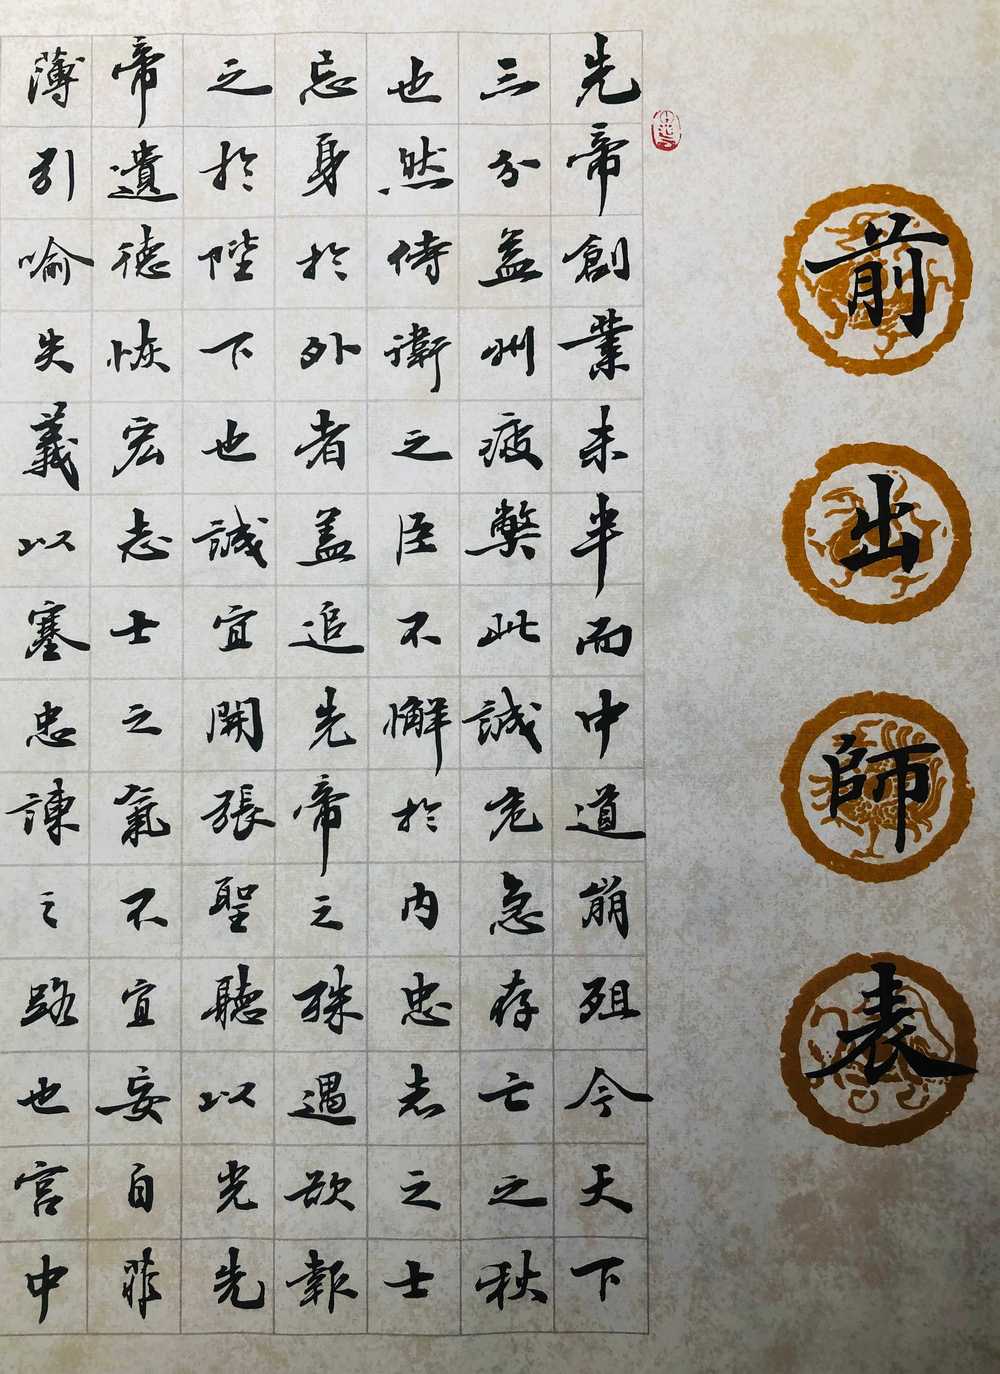 前出師表
先帝創業未半而中道崩殂今天下
三分益州疲弊此誠危急存亡之秋
也然侍衛之臣不懈於内忠志之士
忘身於外者盖追先帝之殊遇欲報
之於陛下也誠宜開張聖聽以光先
帝遺德恢宏志士之氣不宜妄自菲
薄引喻失義以塞忠諫之路也宮中